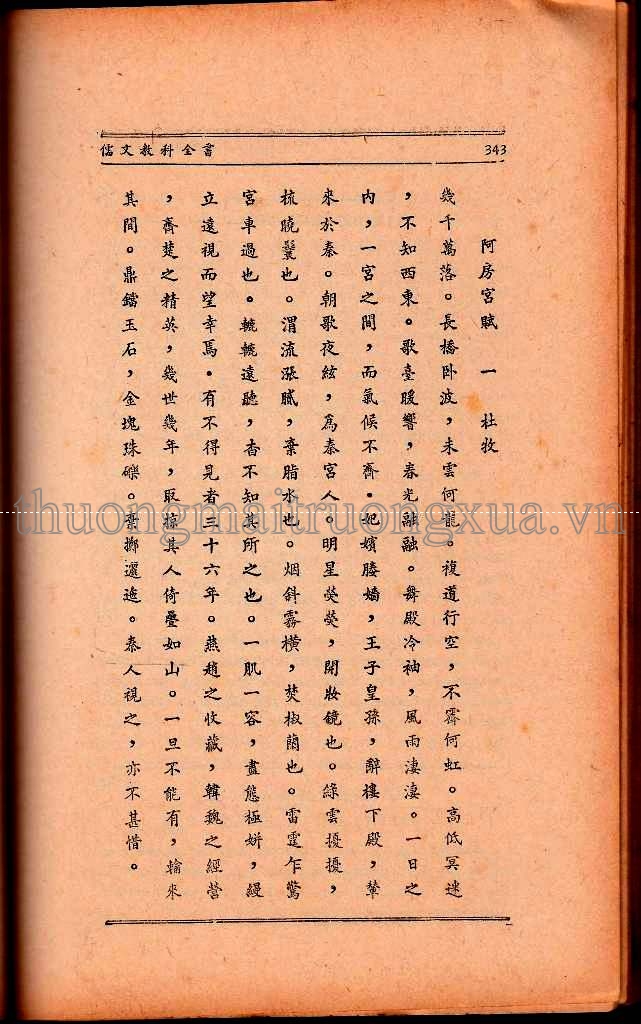 343
儒文教科全書
阿房宮賦 一 杜牧
幾千萬落。長橋卧波,未雲何龍。複道行空,不霽何虹。高低冥迷
,不知西東。歌臺暖響,春光融融。舞殿冷袖,風雨淒淒。一日之
內,一宮之間,而氣候不齊.妃嬪媵嬙,王子皇孫,辭樓下殿,輦
來於秦。朝歌夜絃,爲秦宮人。明星熒熒,開妝鏡也。綠雲擾擾,
梳曉鬟也。渭流漲膩,棄脂水也。烟斜霧橫,焚椒蘭也。雷霆乍驚
宮車過也。轆轆遠聽,杳不知其所之也。一肌一容,盡態極妍,縵
立遠視而望幸焉.有不得見者三十六年。燕趙之收藏,韓魏之經營
,齊楚之精英,幾世幾年,取掠其人倚疊如山。一旦不能有,輸來
其間。鼎鐺玉石,金塊珠礫。棄擲邐迤。秦人視之,亦不甚惜。
thuongmaitruongxua.vn